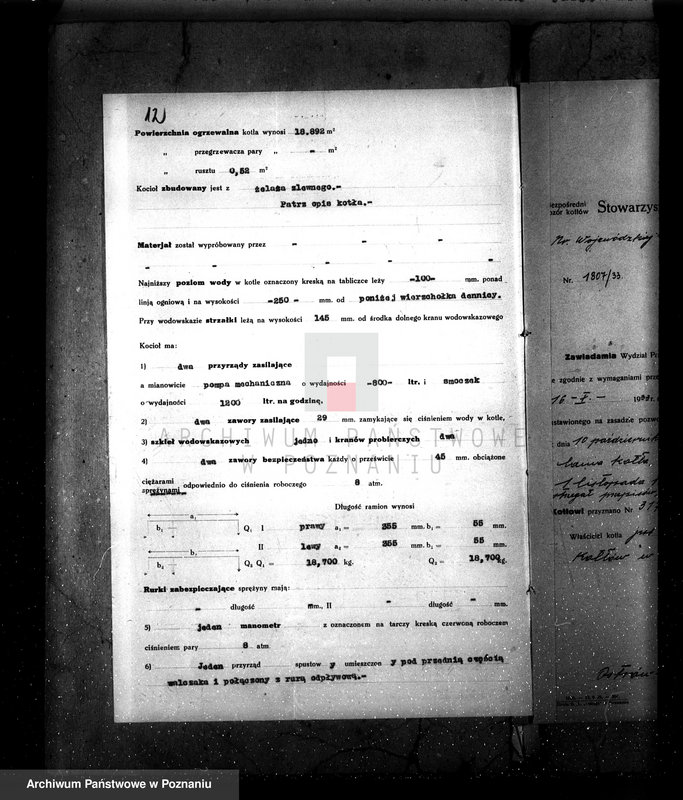 12
Powierzchnia ogrzewalna kotła wynosi 18,892 m²
„ przegrzewacza pary „ - m²
„ rusztu 0,52 m²
Kocioł zbudowany jest z żelaza zlewnego.-
Patrz opis kotła.-
Materjał został wypróbowany przez - - -
- - - - -
Najniższy poziom wody w kotle oznaczony kreską na tabliczce leży -100- mm. ponad
linją ogniową i na wysokości -250 - mm. od poniżej wierzchołka dennicy.
Przy wodowskazie strzałki leżą na wysokości 145 mm. od środka dolnego kranu wodowskazowego
Kocioł ma:
1) dwa przyrządy zasilające
a mianowicie pompa mechaniczna o wydajności -800- ltr. i smoczek
o wydajności 1200 ltr. na godzinę.
2) dwa zawory zasilające 29 mm. zamykające się ciśnieniem wody w kotle,
3) szkieł wodowskazowych jedno i kranów probierczych dwa
4) dwa zawory bezpieczeństwa każdy o prześwicie 45 mm. obciążone
ciężarami
sprężynami odpowiednio do ciśnienia roboczego 8 atm.
Długość ramion wynosi
a₁ b₁ Q₁ I prawy a₁ = 355 mm. b₁ = 55 mm.
II lewy a₂ = 355 mm. b₂ = 55 mm.
Q₂ Q₁ = 18,700 kg. Q₂ = 18,700 kg.
Rurki zabezpieczające sprężyny mają:
- długość mm., II - długość - mm.
5) jeden manometr z oznaczonem na tarczy kreską czerwoną roboczem
ciśnieniem pary 8 atm
6) Jeden przyrząd spustowy umieszczony pod przednią częścią
walczaka i połączony z rurą odpływową.-
ARCHIWUM PAŃSTWOWE
W POZNANIU
bezpośredni
dozór kotłów Stowarzys
Nr. Wojewódzkiej
Nr. 1807/33.
Zawiadamia Wydział Pr
e zgodnie z wymaganiami prze
16 - I -
stawionego na zasadzie pozw
dnia 10 października
1 listopada
Kotłowi przyznano Nr.
Właściciel kotła
Kotłów w
Archiwum Państwowe w Poznaniu